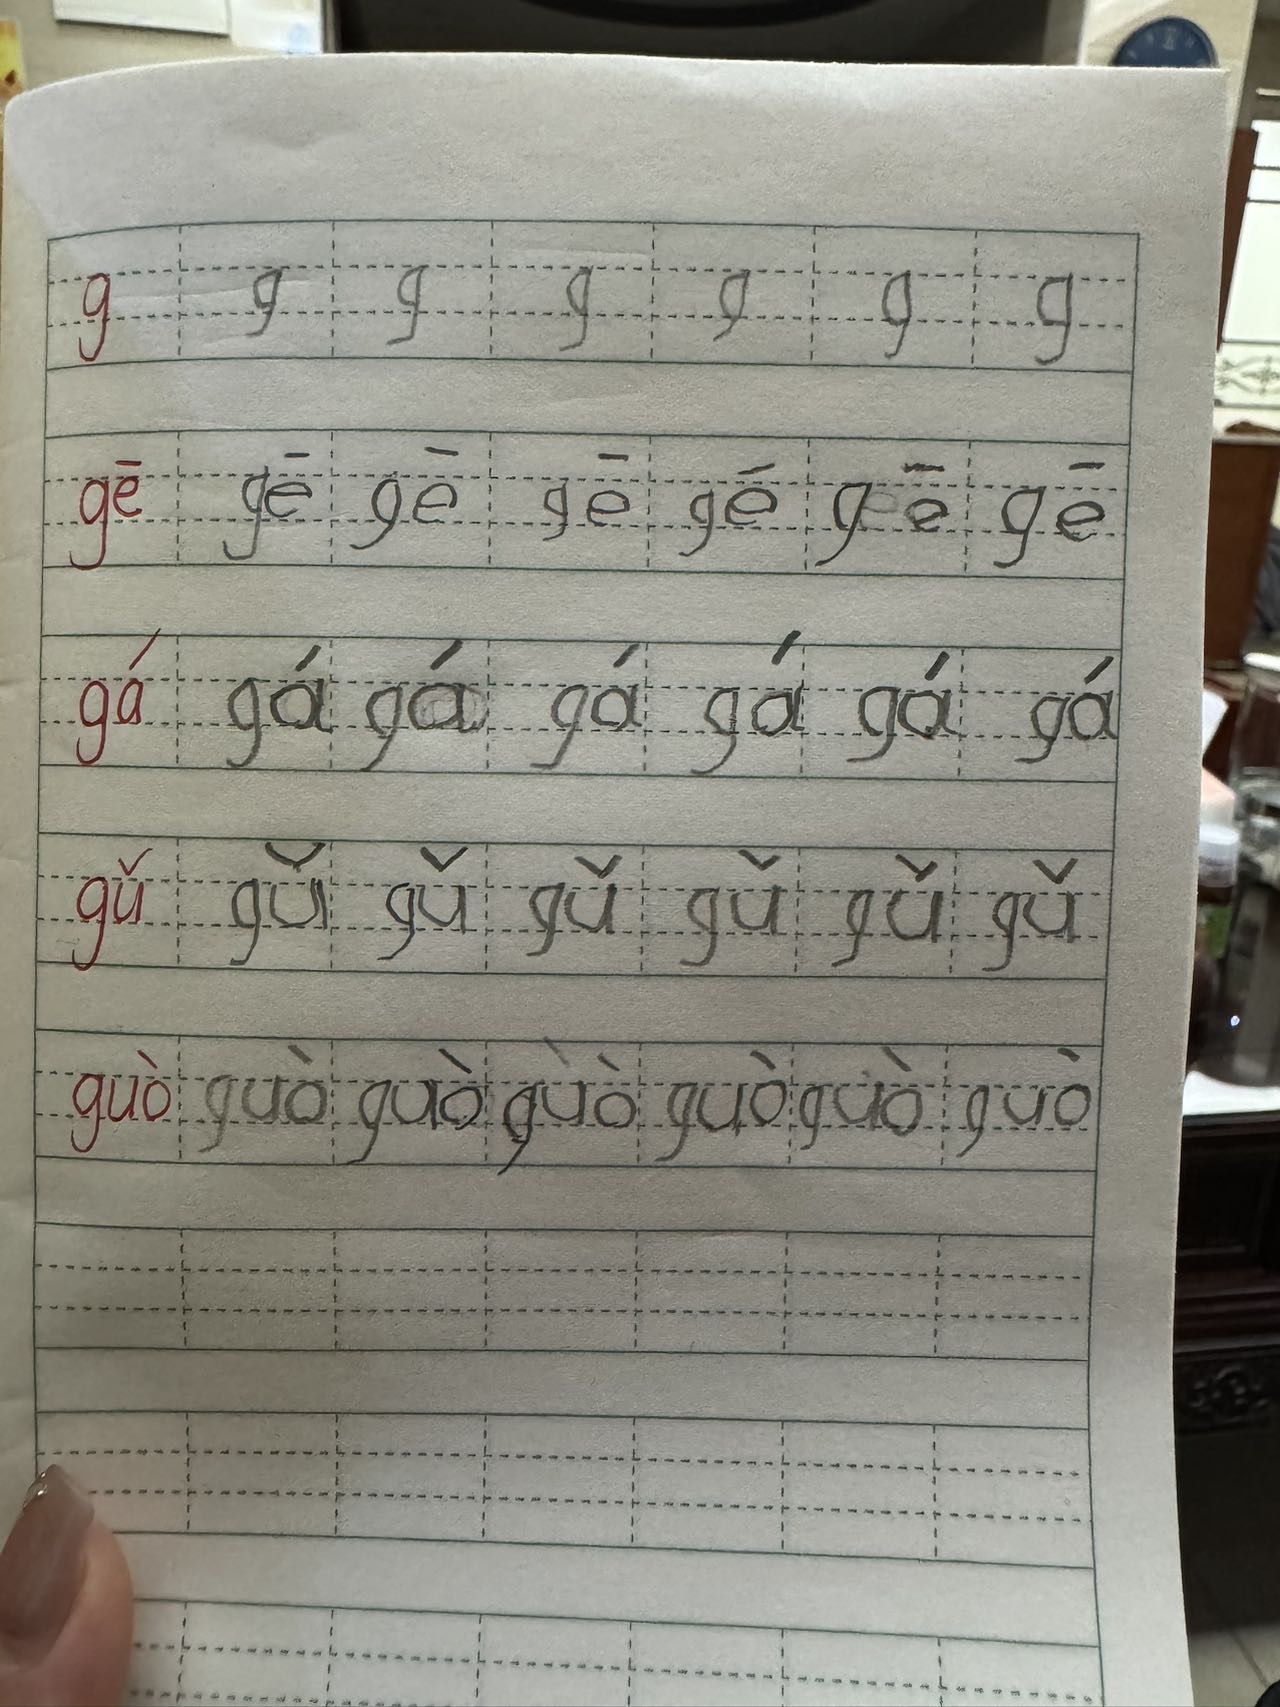 g g g g g g g
gē gē gē gē gē gē gē
gá gá gá gá gá gá gá
gǔ gǔ gǔ gǔ gǔ gǔ gǔ
guò guò guò guò guò guò guò